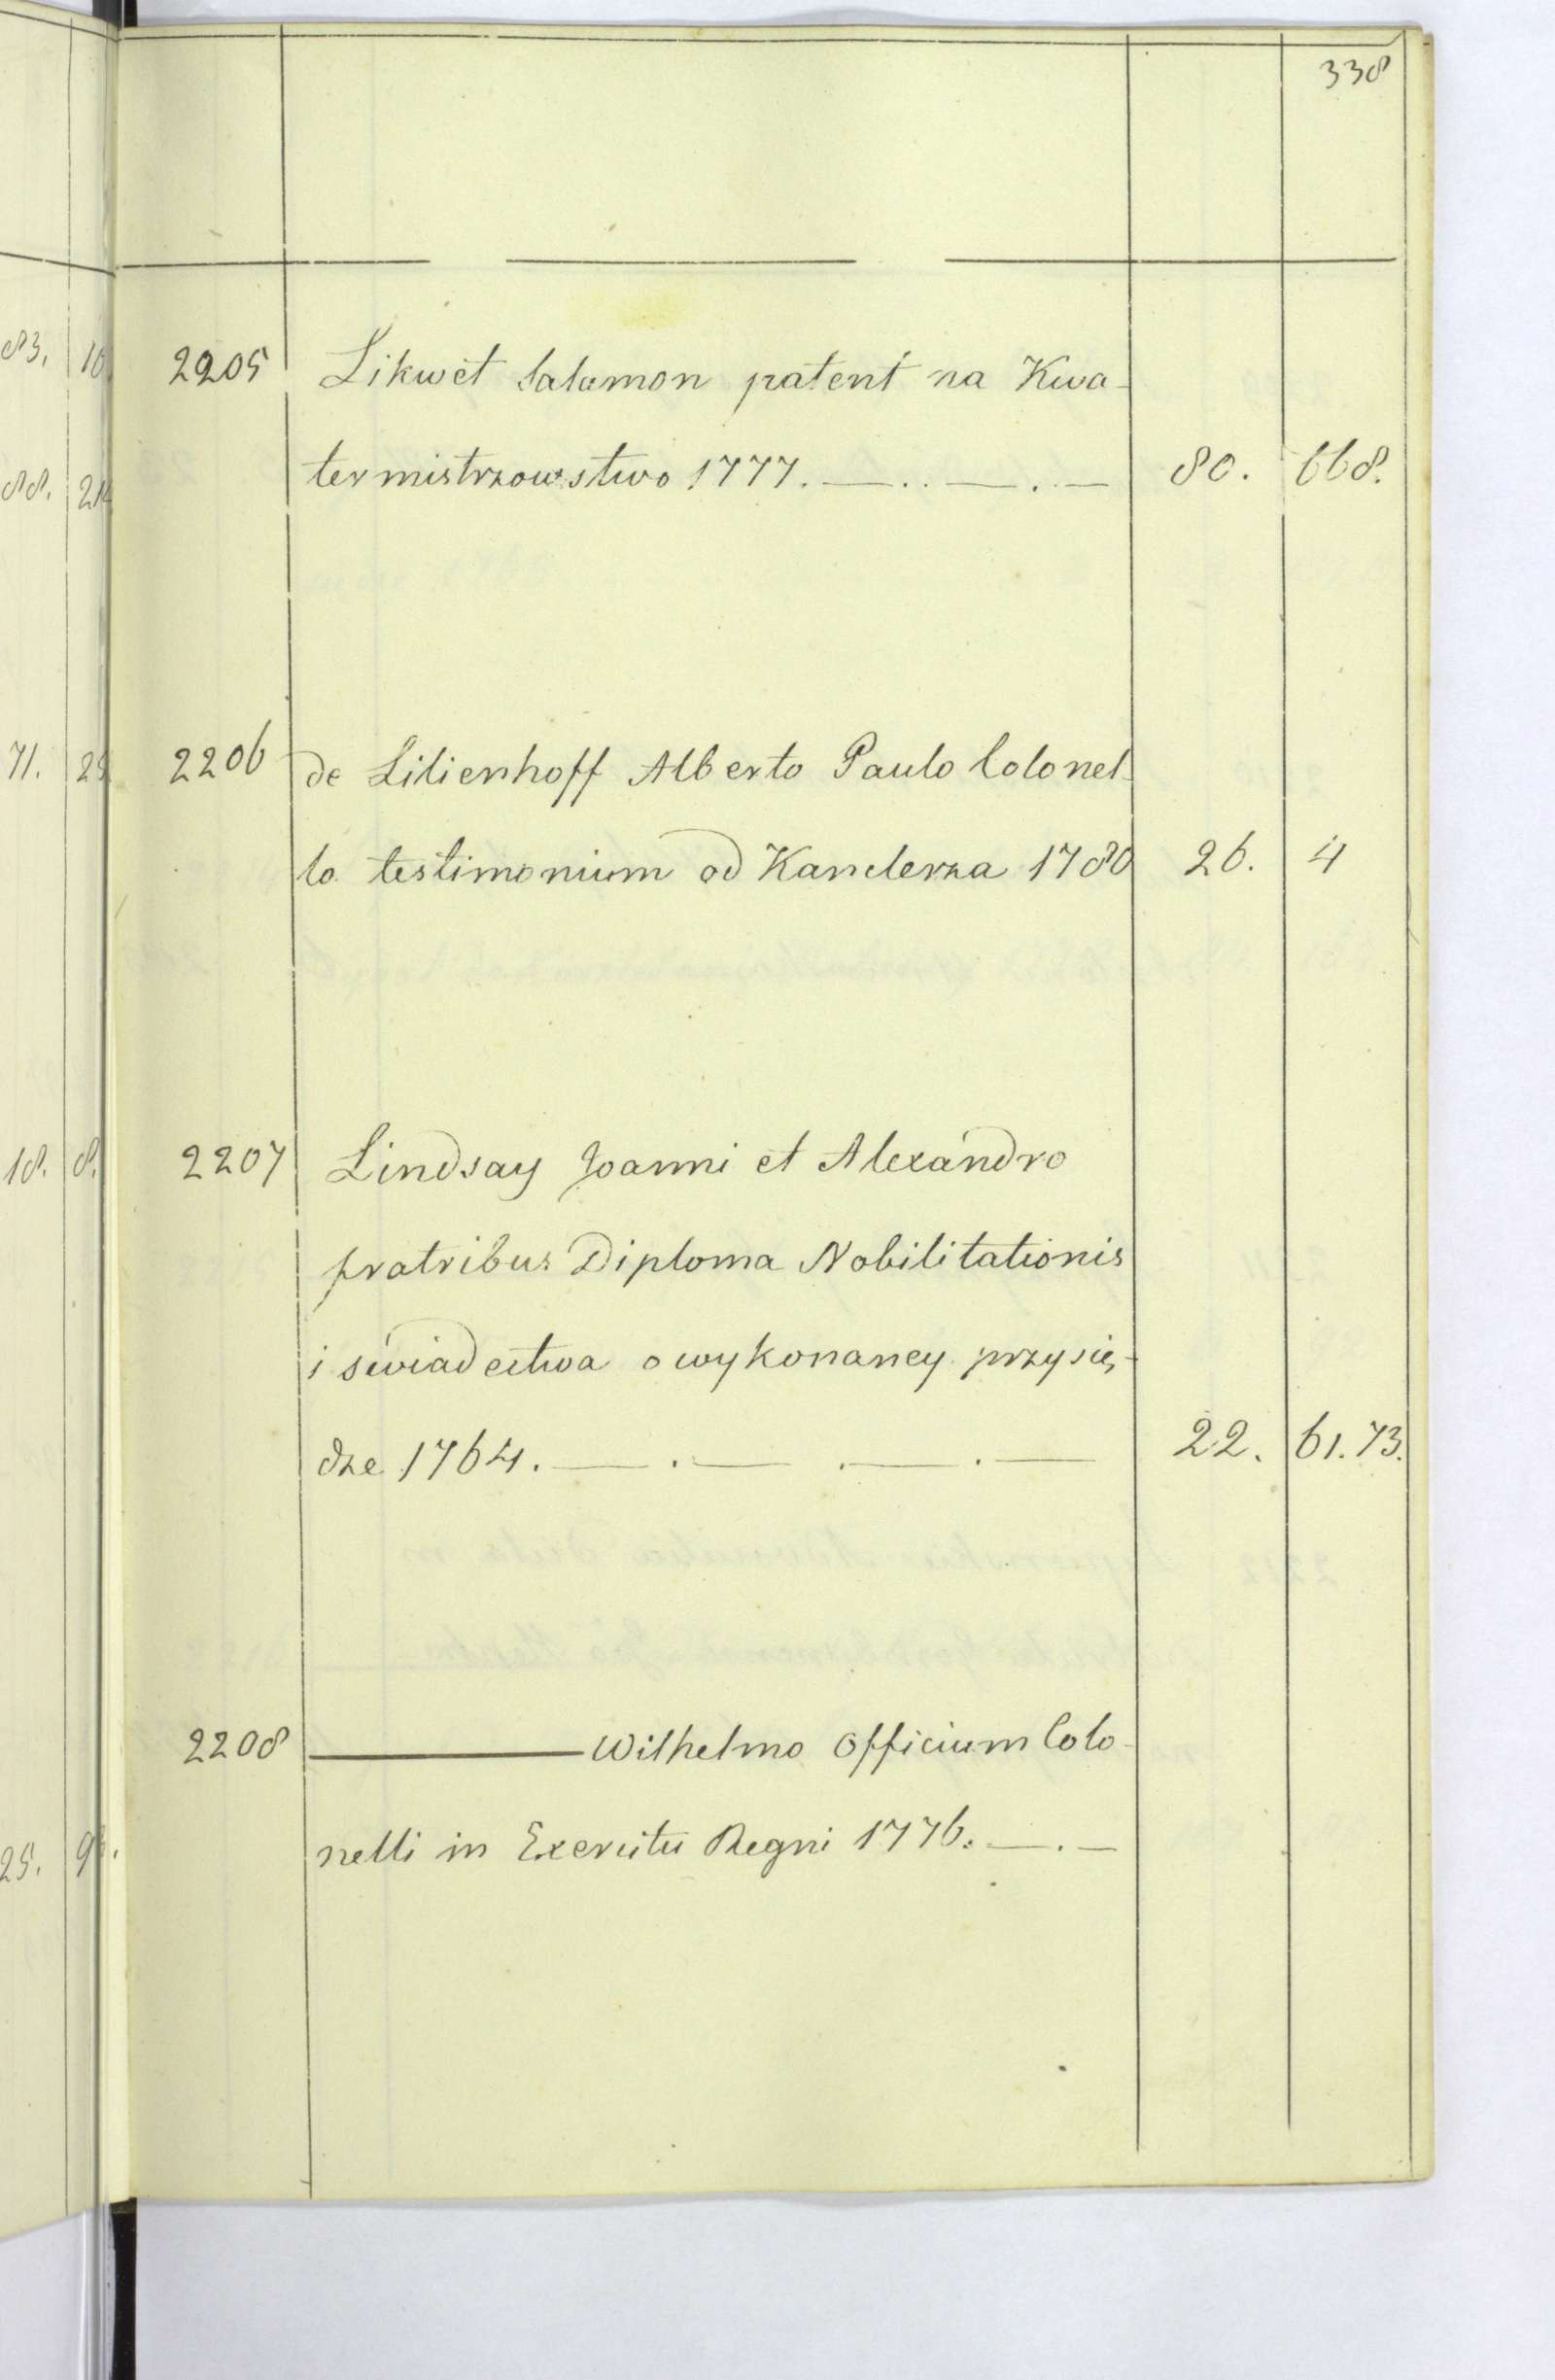 338
2205 Likwet Salamon patent na Kwa-
termistrzowstwo 1777. 80. 668.
2206 de Lilienhoff Alberto Paulo Colonel-
lo testimonium od Kanclerza 1780 26. 4
2207 Lindsay Joanni et Alexandro
fratribus Diploma Nobilitationis
i świadectwa o wykonaney przysię-
dze 1764. 22. 61.73.
2208 ——— Wilhelmo Officium Colo-
nelli in Exercitu Regni 1776.
83.
88.
71.
18. 8.
25.